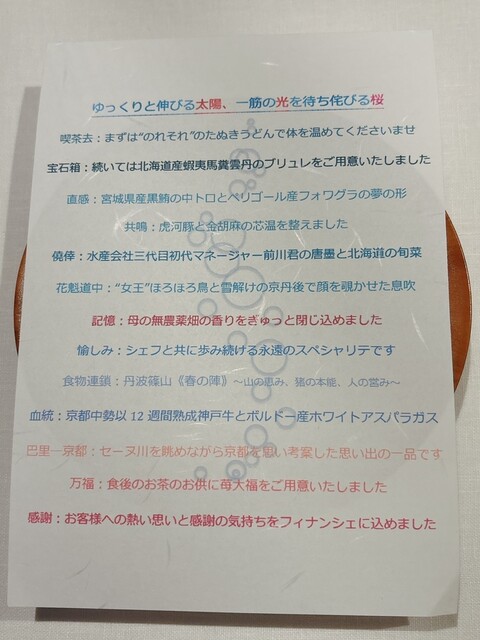 ゆっくりと伸びる太陽、一筋の光を待ち侘びる桜
喫茶去：まずは“のれそれ”のたぬきうどんで体を温めてくださいませ
宝石箱：続いては北海道産蝦夷馬糞雲丹のブリュレをご用意いたしました
直感：宮城県産黒鮪の中トロとペリゴール産フォワグラの夢の形
共鳴：虎河豚と金胡麻の芯温を整えました
僥倖：水産会社三代目初代マネージャー前川君の唐墨と北海道の旬菜
花魁道中：“女王”ほろほろ鳥と雪解けの京丹後で顔を覗かせた息吹
記憶：母の無農薬畑の香りをぎゅっと閉じ込めました
愉しみ：シェフと共に歩み続ける永遠のスペシャリテです
食物連鎖：丹波篠山《春の陣》～山の恵み、猪の本能、人の営み～
血統：京都中勢以 12 週間熟成神戸牛とボルドー産ホワイトアスパラガス
巴里―京都：セーヌ川を眺めながら京都を思い考案した思い出の一品です
万福：食後のお茶のお供に苺大福をご用意いたしました
感謝：お客様への熱い思いと感謝の気持ちをフィナンシェに込めました